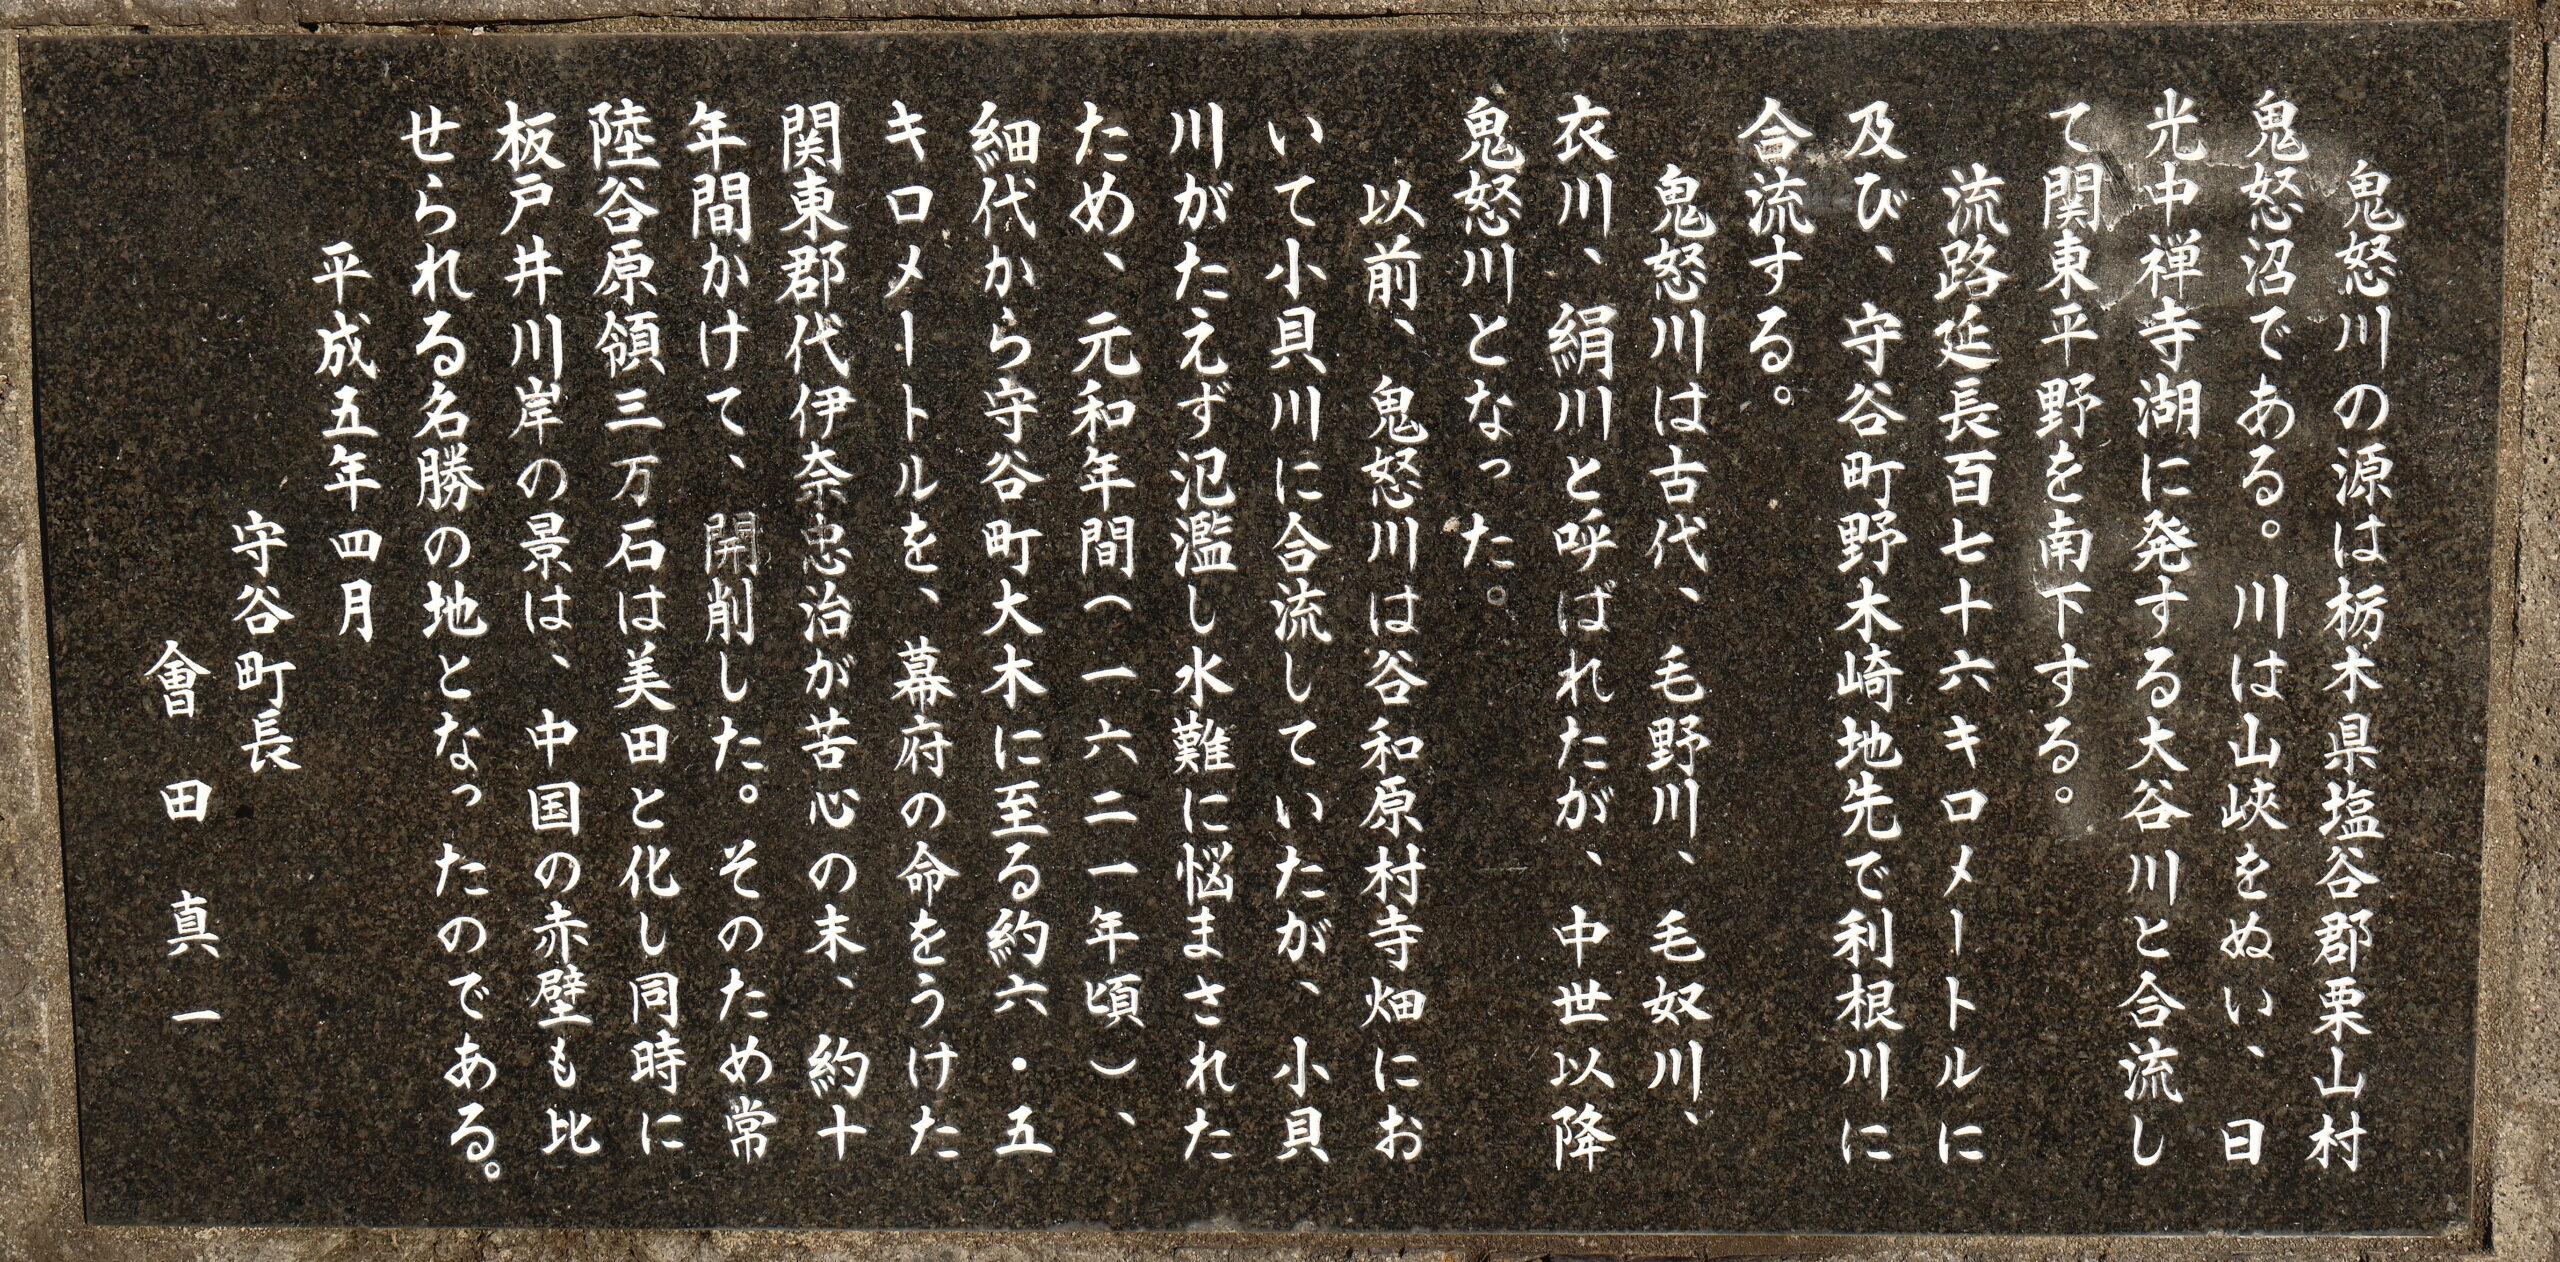 鬼怒川の源は栃木県塩谷郡栗山村
鬼怒沼である。川は山峡をぬい、日
光中禅寺湖に発する大谷川と合流し
て関東平野を南下する。
流路延長百七十六キロメートルに
及び、守谷町野木崎地先で利根川に
合流する。
鬼怒川は古代、毛野川、毛奴川、
衣川、絹川と呼ばれたが、中世以降
鬼怒川となった。
以前、鬼怒川は谷和原村寺畑にお
いて小貝川に合流していたが、小貝
川がたえず氾濫し水難に悩まされた
ため、元和年間(一六二一年頃)、
細代から守谷町大木に至る約六・五
キロメートルを、幕府の命をうけた
関東郡代伊奈忠治が苦心の末、約十
年間かけて、開削した。そのため常
陸谷原領三万石は美田と化し同時に
板戸井川岸の景は、中国の赤壁も比
せられる名勝の地となったのである。
平成五年四月
守谷町長
會田真一